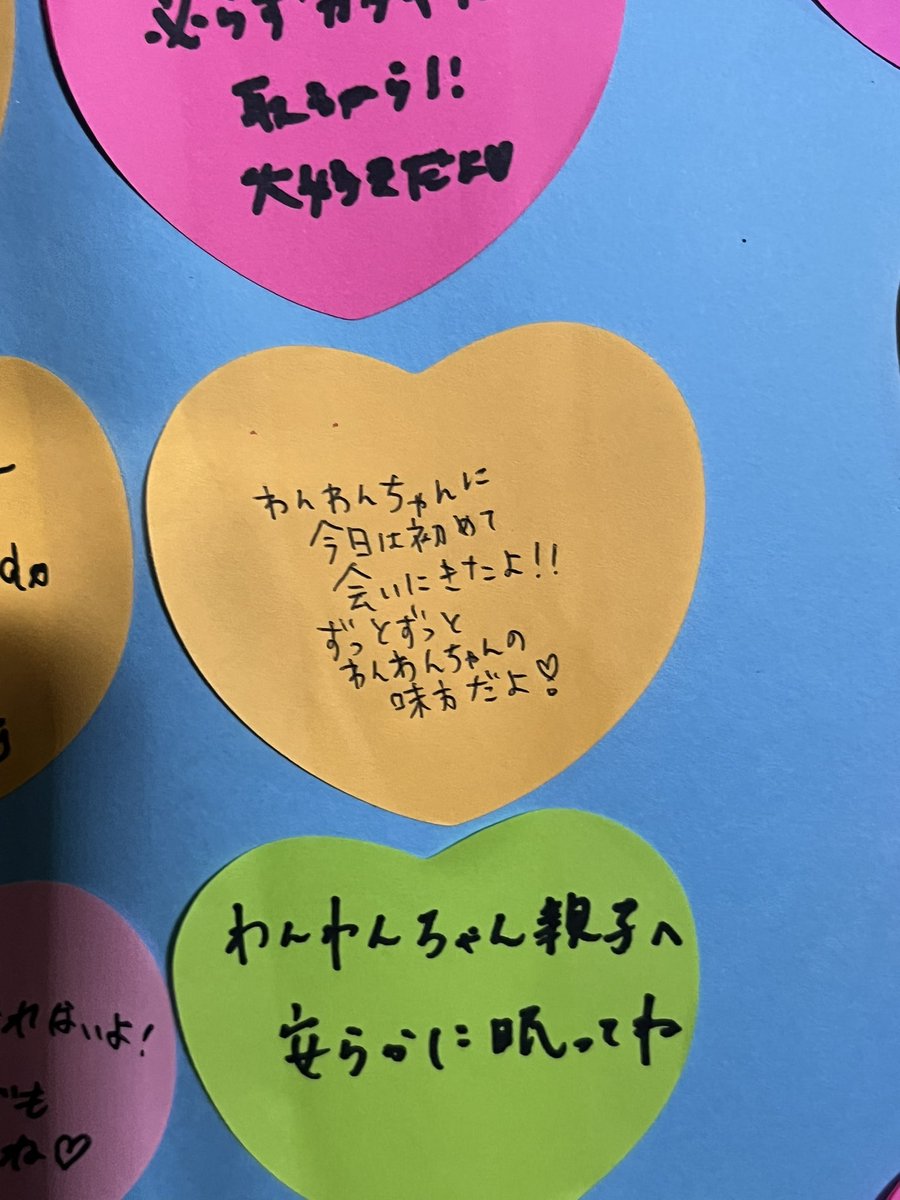 必らず
取ちゃう!!
大好きだよ♡
わんわんちゃんに
今日は初めて
会いにきたよ!!
ずっとずっと
わんわんちゃんの
味方だよ♡
わんわんちゃん親子へ
安らかに眠ってね
ればいいよ!
でも
ね♡
do